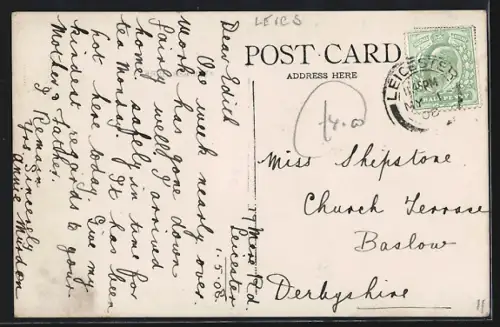 LEICS
POST CARD
ADDRESS HERE
LEICESTER
£4.00
Miss Shipstone
Church Terrace
Baslow
Derbyshire
Mere Rd.
Leicester
1.5.08
Dear Edith
One week nearly over.
Work has gone down
fairly well. I arrived
home safely in time for
tea Monday. It has been
hot here today. Give my
kindest regards to your
Mother & Father.
I Remain
Yrs Sincerely
Annie